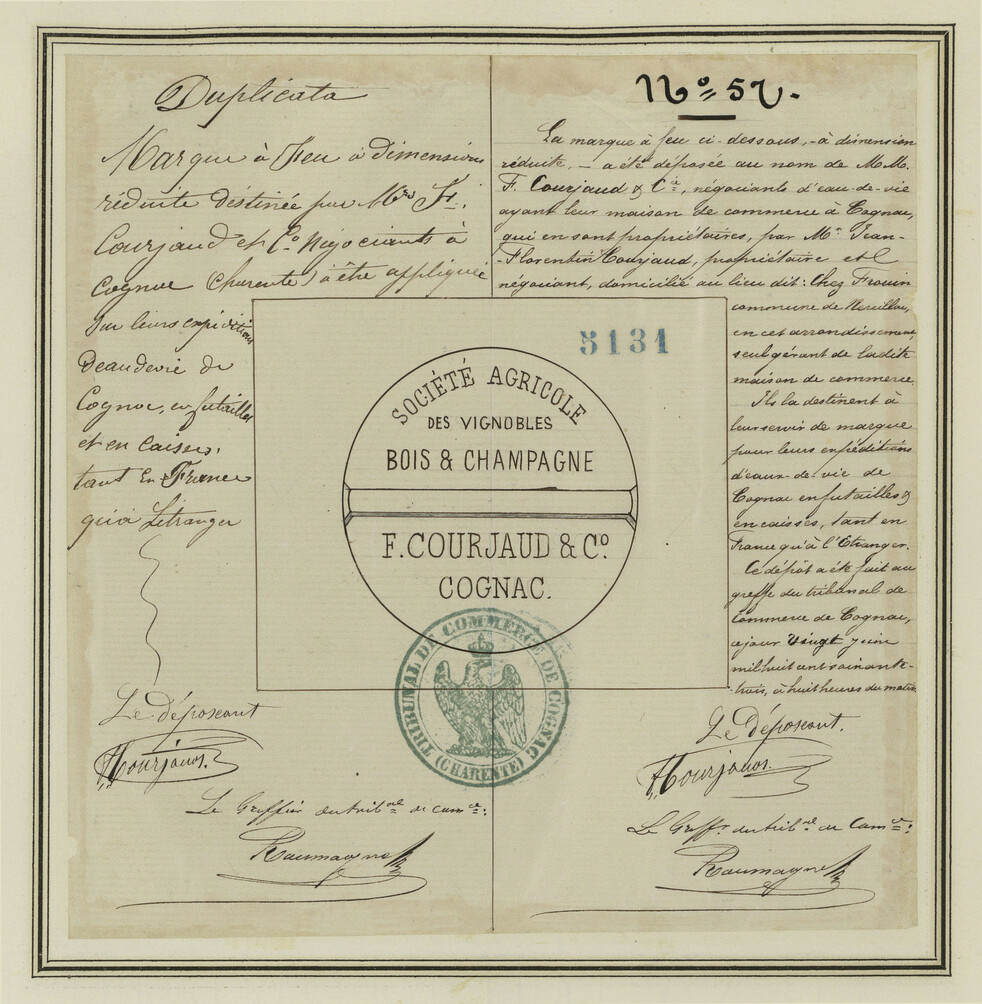 Duplicata
Marque à Feu à dimensions
réduite déstinée par Mrs Ft.
Courjaud et Co Négociants à
Cognac (Charente) à être appliquée
Sur leurs expéditions
d'eau de vie de
Cognac, en futailles
et en caisses,
tant En France
qu'à L'étranger
Le déposant
FCourjaud.
Le Greffier du tribal de comce:
Raumagne
No 52.
La marque à feu ci-dessous, - à dimension
réduite, - a été déposée au nom de M.M.
F. Courjaud & Cie, négociants d'eau-de-vie
ayant leur maison de commerce à Cognac,
qui en sont propriétaires, par Mr Jean-
-Florentin Courjaud, propriétaire et
négociant, domicilié au lieu dit: Chez Frouin
commune de Nercillac,
en cet arrondissement,
seul gérant de ladite
maison de commerce.
Ils la destinent à
leur servir de marque
pour leurs expéditions
d'eaux-de-vie de
Cognac en futailles &
en caisses, tant en
France qu'à l'Etranger.
Ce dépôt a été fait au
greffe du tribunal de
Commerce de Cognac,
ce jour Vingt Juin
mil huit cent soixante-
-trois, à huit heures du matin
Le déposant.
FCourjaud.
Le Greffr du tribal de Comce:
Raumagne
5131
SOCIÉTÉ AGRICOLE
DES VIGNOBLES
BOIS & CHAMPAGNE
F. COURJAUD & Co
COGNAC.
TRIBUNAL DE COMMERCE DE COGNAC
(CHARENTE)